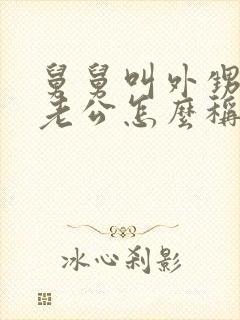 舅舅叫外甥
老公怎麼稱
冰心剎影